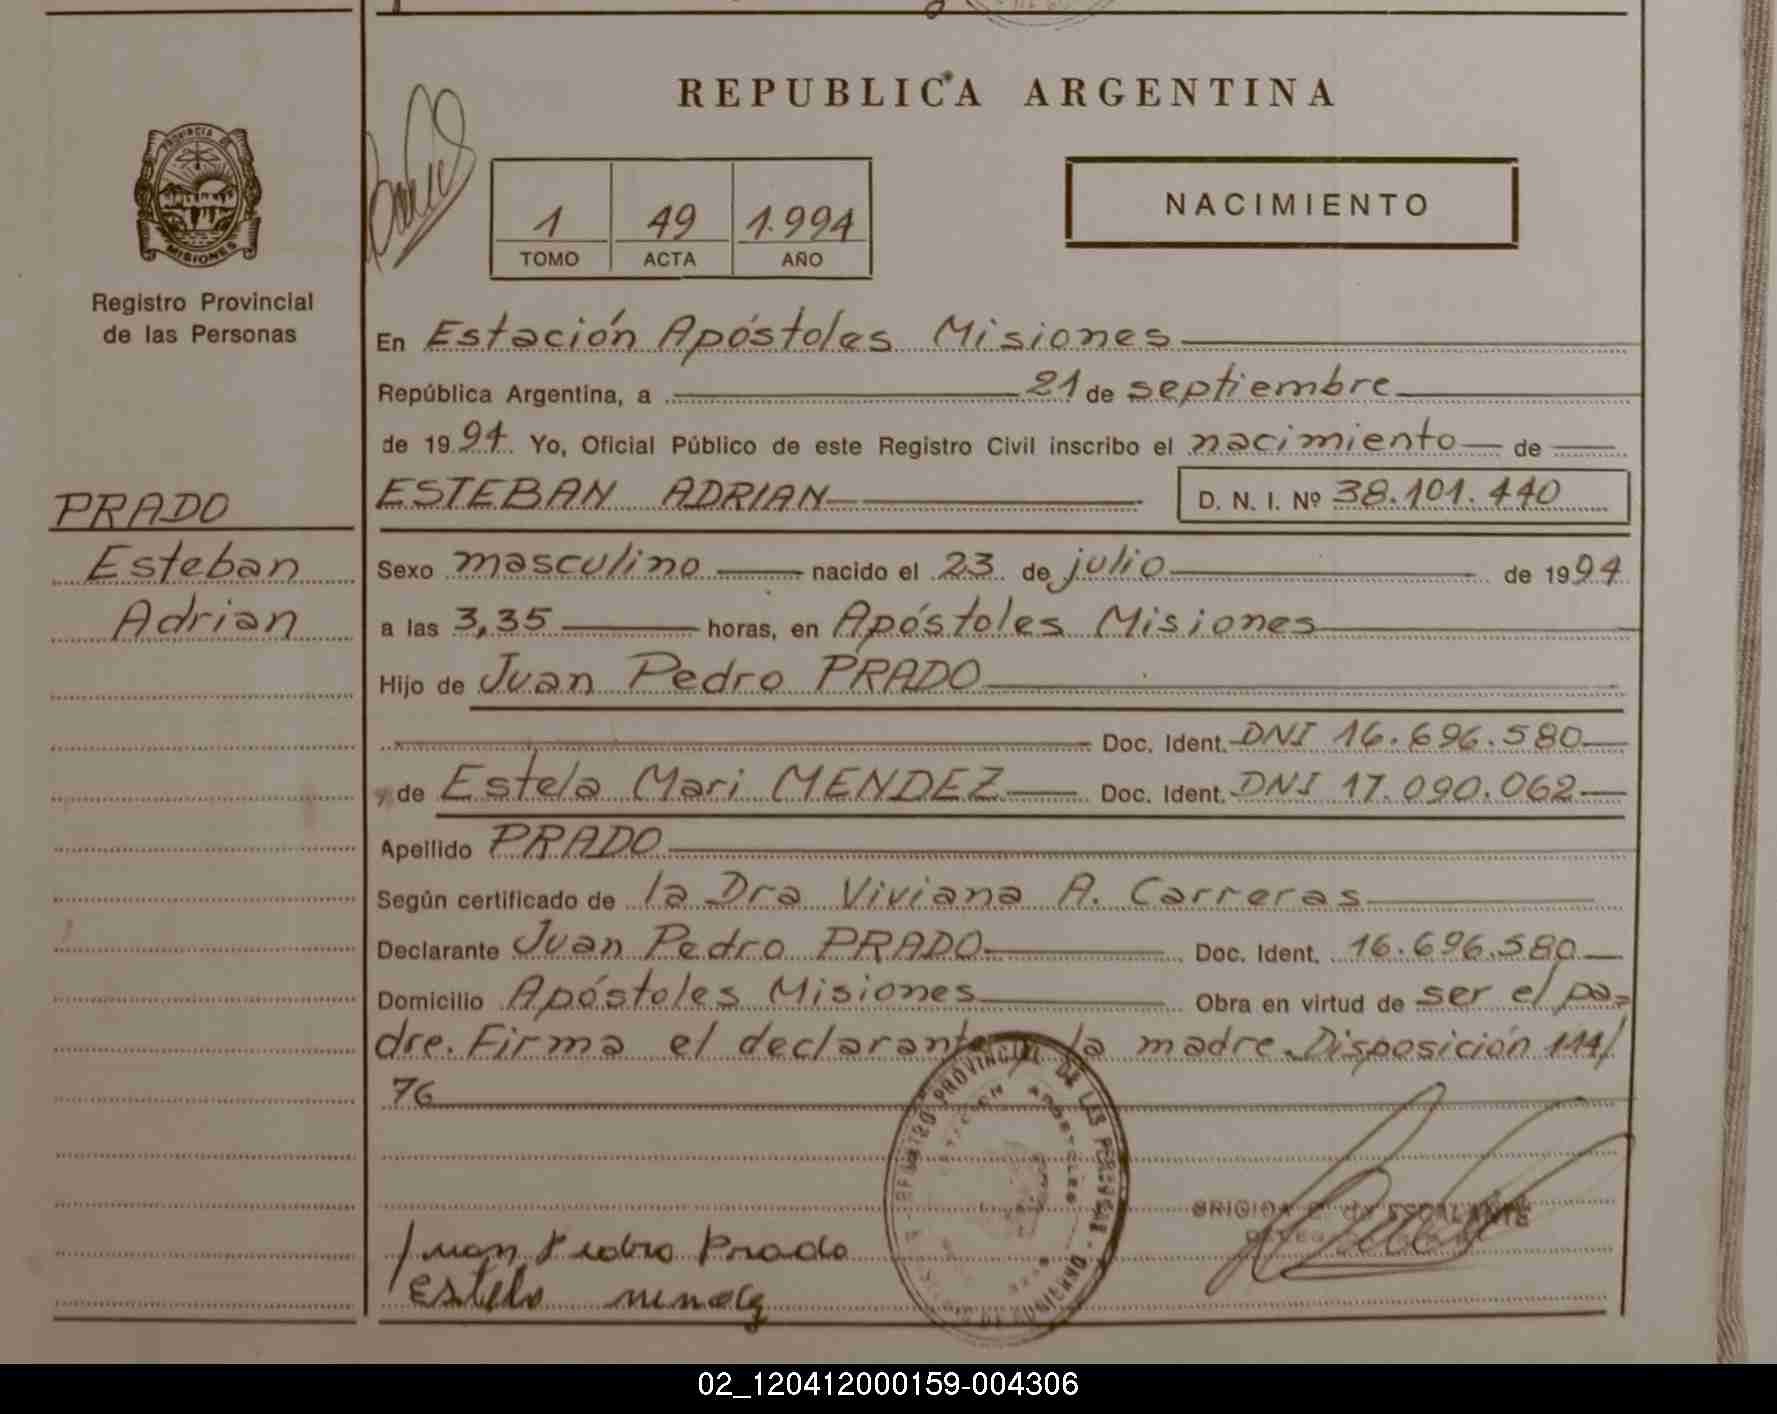 REPUBLICA ARGENTINA
PROVINCIA DE
MISIONES
Registro Provincial
de las Personas
1 49 1.994
TOMO ACTA AÑO
NACIMIENTO
En Estación Apóstoles Misiones
República Argentina, a 21 de septiembre
de 1994. Yo, Oficial Público de este Registro Civil inscribo el nacimiento de
PRADO
Esteban
Adrian
ESTEBAN ADRIAN D. N. I. Nº 38.101.440
Sexo masculino nacido el 23 de julio de 1994
a las 3,35 horas, en Apóstoles Misiones
Hijo de Juan Pedro PRADO
Doc. Ident. DNI 16.696.580
y de Estela Mari MENDEZ Doc. Ident. DNI 17.090.062
Apellido PRADO
Según certificado de la Dra Viviana A. Carreras
Declarante Juan Pedro PRADO Doc. Ident. 16.696.580
Domicilio Apóstoles Misiones Obra en virtud de ser el pa-
dre. Firma el declarante y la madre. Disposición 111/
76
PROVINCIAL DE LAS PERSONAS
Juan Pedro Prado
Estela
ESCALANTE
02_120412000159-004306